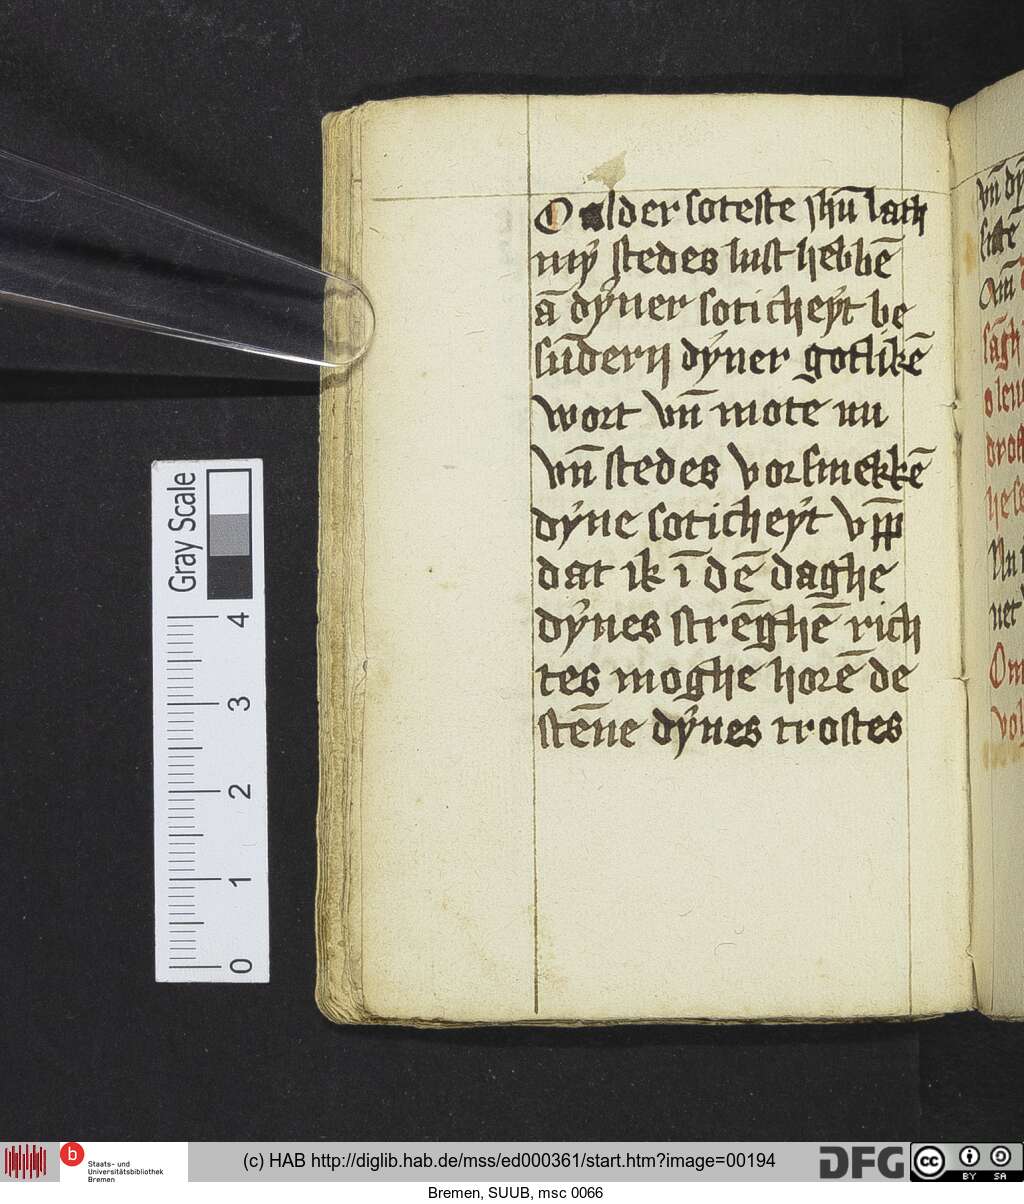 O alder soteste jhū lath
mẏ stedes lust hebbē
ā dẏner soticheẏt be
sūdern dẏner gotlikē
wort vn̄ mote nu
vn̄ stedes vorsmekkē
dẏne soticheẏt vpp
dat ik ī dē daghe
dẏnes strēghē rich
tes moghe horē de
stēne dẏnes trostes
vn̄
Gray Scale
4
3
2
1
0
b
Staats- und
Universitätsbibliothek
Bremen
(c) HAB http://diglib.hab.de/mss/ed000361/start.htm?image=00194
DFG
cc
BY SA
Bremen, SUUB, msc 0066